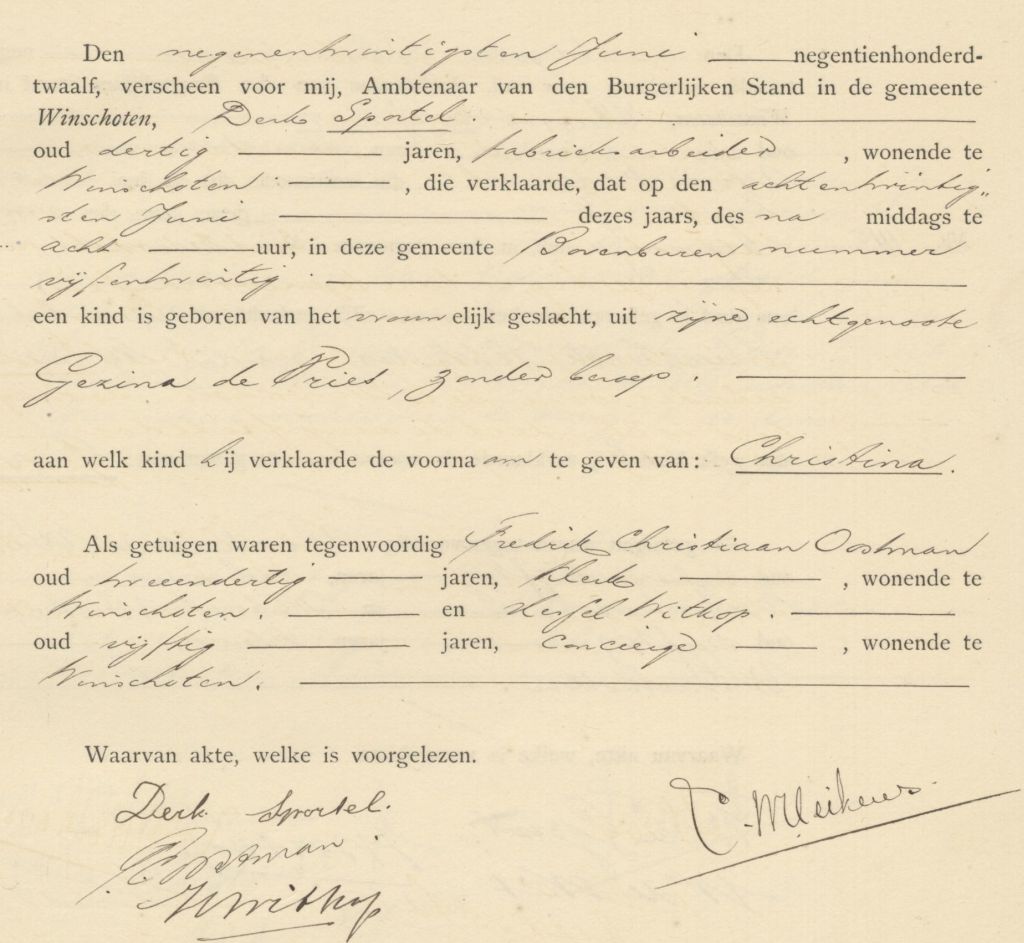 Den negenentwintigsten Juni negentienhonderd-
twaalf, verscheen voor mij, Ambtenaar van den Burgerlijken Stand in de gemeente
Winschoten, Derk Sportel.
oud dertig jaren, fabrieksarbeider, wonende te
Winschoten, die verklaarde, dat op den achtentwintig„
sten Juni dezes jaars, des na middags te
acht uur, in deze gemeente Bovenburen nummer
vijfentwintig.
een kind is geboren van het vrouwelijk geslacht, uit zijne echtgenoote
Gezina de Vries, zonder beroep.
aan welk kind hij verklaarde de voornaam te geven van: Christina.
Als getuigen waren tegenwoordig Fredrik Christiaan Oostman
oud tweeendertig jaren, klerk, wonende te
Winschoten. en Witkop.
oud vijftig jaren, concierge, wonende te
Winschoten.
Waarvan akte, welke is voorgelezen.
Derk Sportel.
Oostman
HWitkop